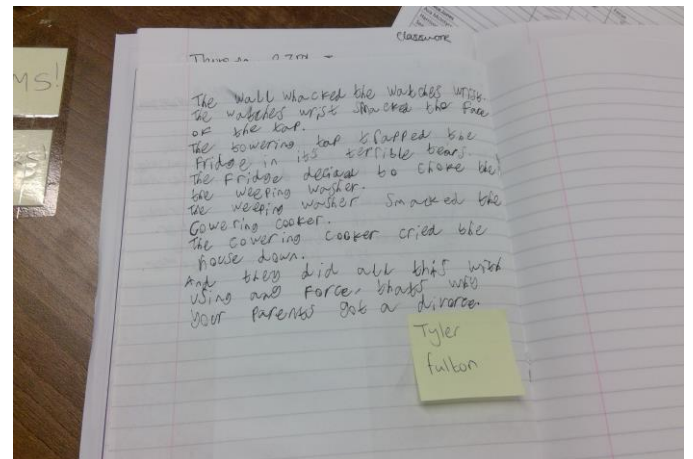 MS!
Classwork
The wall whacked the watches wrist.
The watches wrist smacked the face
of the tap.
The towering tap trapped the
Fridge in its terrible tears.
The Fridge decided to choke the
the weeping washer.
The weeping washer smacked the
Cowering cooker.
The cowering cooker cried the
house down.
And they did all this with
using any Force, thats why
your parents got a divorce.
Tyler
fulton